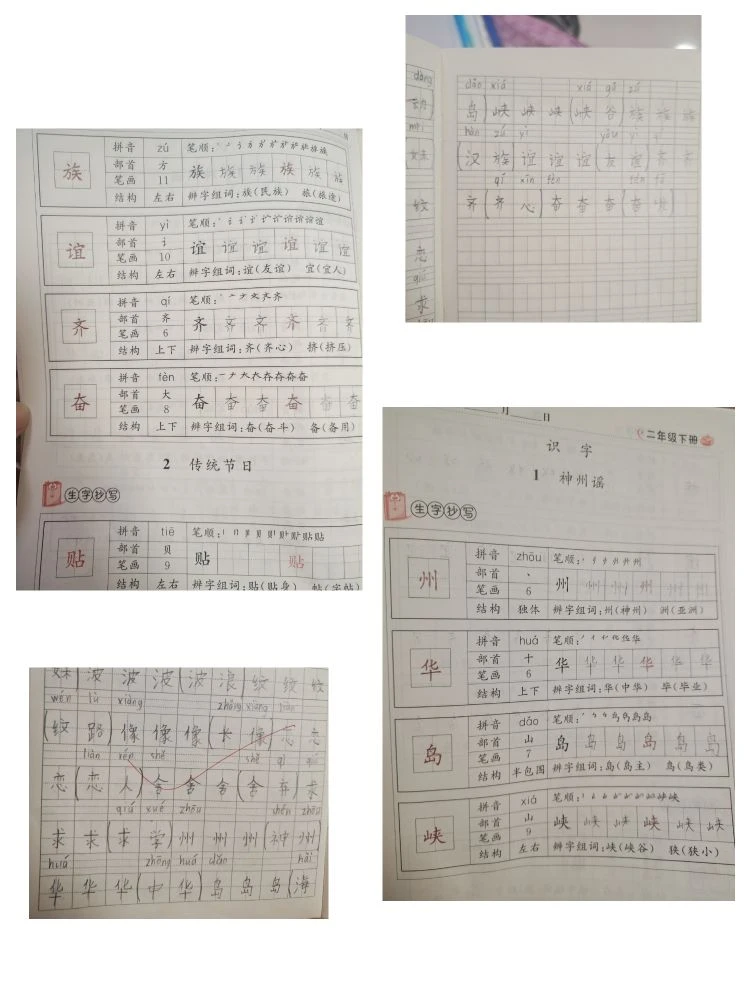 dǎo xiá xiá gǔ zú
岛(峡 峡 峡(峡 谷 族 族 族
hàn zú yì yǒu yì qí
(汉 族 谊 谊 谊(友 谊 齐 齐
qí xīn fèn fèn
齐(齐 心 奋 奋 奋(奋
纹
恋
qiú
求
族
拼音 zú 笔顺:
部首 方 族 族 族 族 族 族
笔画 11
结构 左右 辨字组词:族(民族) 旅(旅途)
谊
拼音 yì 笔顺:
部首 讠 谊 谊 谊 谊 谊 谊
笔画 10
结构 左右 辨字组词:谊(友谊) 宜(宜人)
齐
拼音 qí 笔顺:
部首 齐 齐 齐 齐 齐 齐 齐
笔画 6
结构 上下 辨字组词:齐(齐心) 挤(挤压)
奋
拼音 fèn 笔顺:
部首 大 奋 奋 奋 奋 奋 奋
笔画 8
结构 上下 辨字组词:奋(奋斗) 备(备用)
2 传统节日
生字抄写
贴
拼音 tiē 笔顺:
部首 贝 贴 贴
笔画 9
结构 左右 辨字组词:贴(贴身) 帖(字帖)
月 日
二年级下册
识 字
1 神州谣
生字抄写
州
拼音 zhōu 笔顺:
部首 丶 州 州 州 州 州 州
笔画 6
结构 独体 辨字组词:州(神州) 洲(亚洲)
华
拼音 huá 笔顺:
部首 十 华 华 华 华 华 华
笔画 6
结构 上下 辨字组词:华(中华) 毕(毕业)
岛
拼音 dǎo 笔顺:
部首 山 岛 岛 岛 岛 岛 岛
笔画 7
结构 半包围 辨字组词:岛(岛主) 鸟(鸟类)
峡
拼音 xiá 笔顺:
部首 山 峡 峡 峡 峡 峡 峡
笔画 9
结构 左右 辨字组词:峡(峡谷) 狭(狭小)
妹)波 波 波 波 浪 纹 纹 纹
wén lù xiàng zhǎng xiàng liàn
(纹 路)像 像 像(长 像)恋 恋
liàn rén shě shě qì qiú
恋(恋 人)舍 舍 舍(舍 弃)求
qiú xué zhōu shén zhōu
求 求(求 学)州 州 州(神 州
huá zhōng huá dǎo hǎi
华 华 华(中 华)岛 岛 岛(海